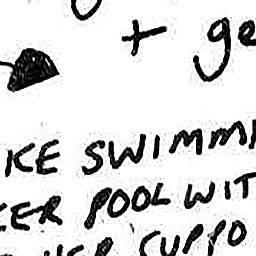 + ge
KE SWIMMI
ER POOL WIT
HER SUPPO